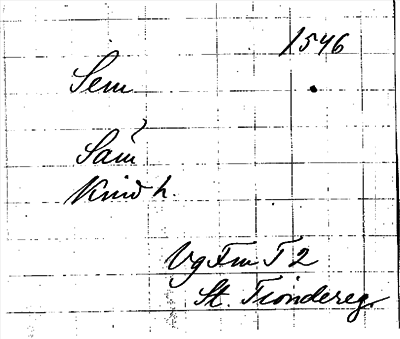 1546
Sem
Säm
Kind h.
Vg Fm T 2
St. Tiondereg.